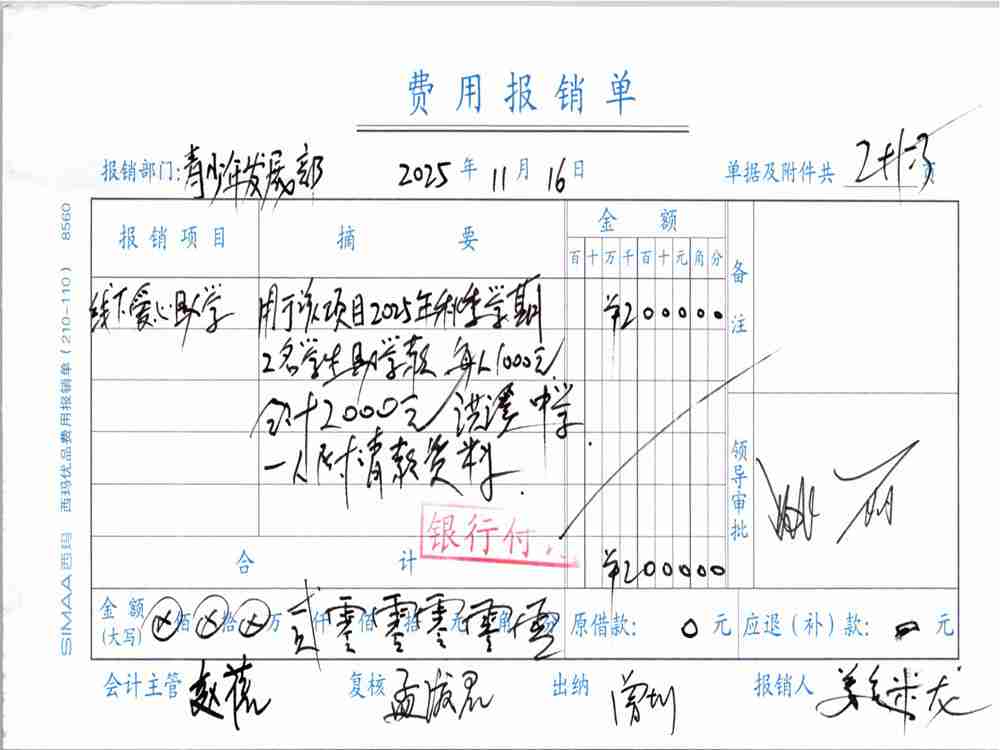 费用报销单
报销部门：青少年发展部 2025年11月16日 单据及附件共 页
报销项目 摘要 金额 备注
百十万千百十元角分
线下爱心助学 用于该项目2025年秋季学期 ¥200000
2名学生助学款 每人1000元
合计2000元 洪溪中学
一人附请款资料.
领导审批
银行付
合计 ¥200000
金额(大写) ⊗佰⊗拾⊗万贰仟零佰零拾零元零角零分 原借款：0元 应退（补）款： 元
会计主管 复核 孟淑君 出纳 报销人
SIMAA西玛 西玛优品费用报销单（210-110） 8560